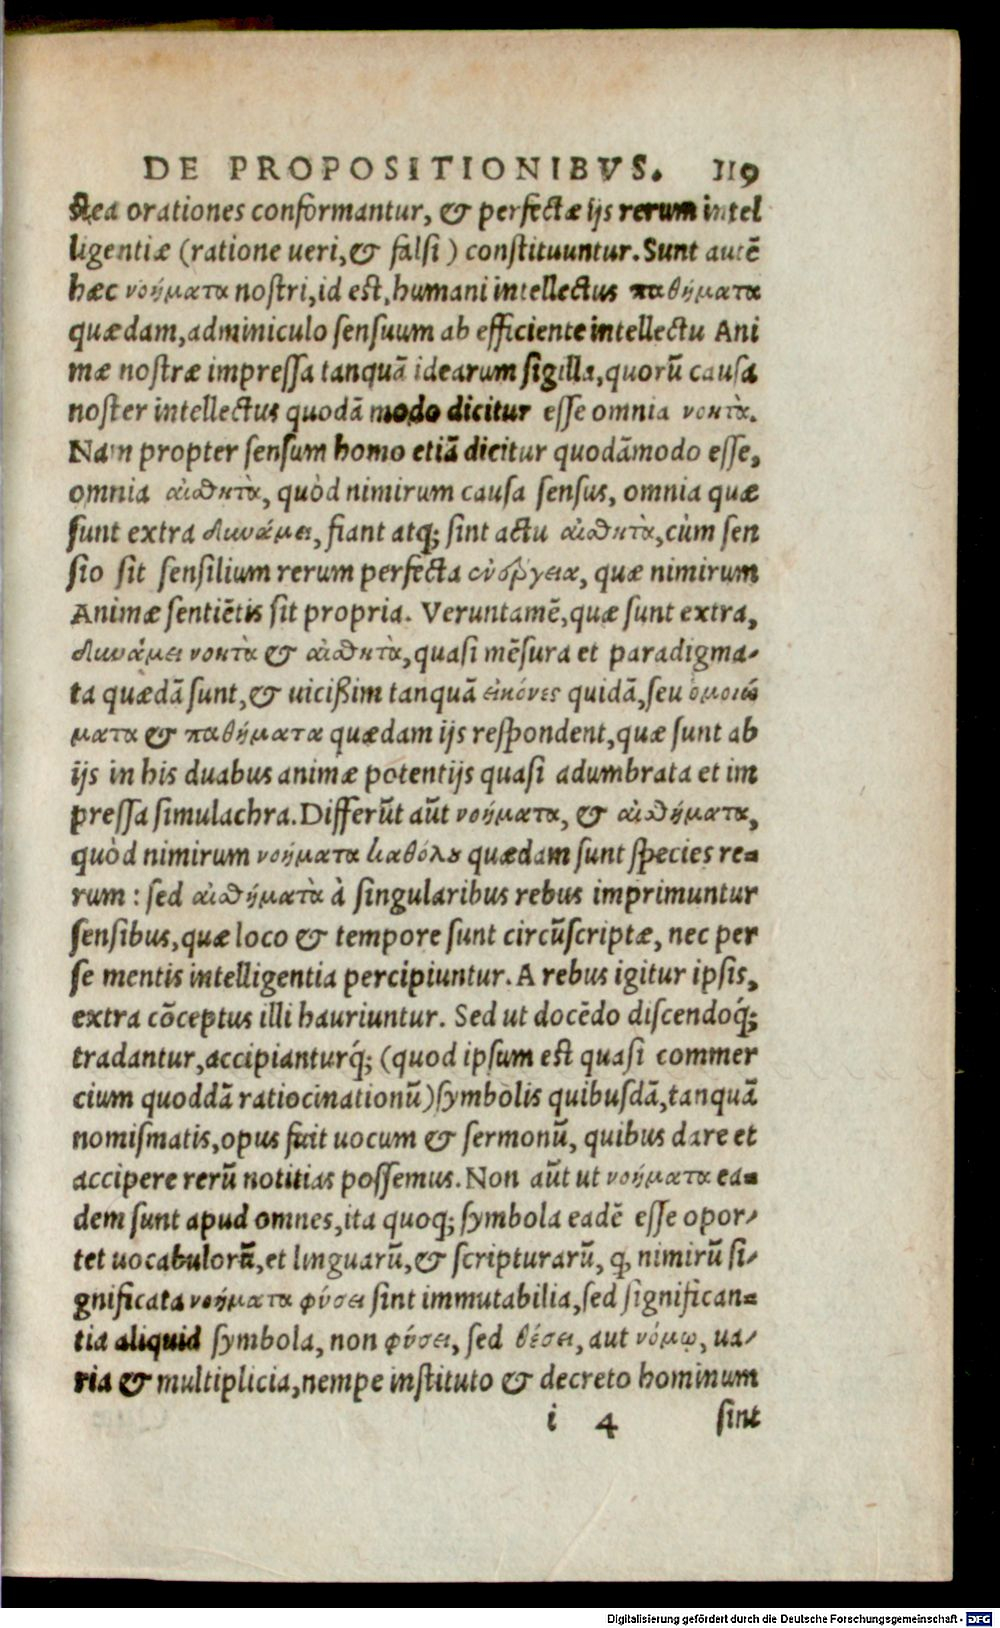 DE PROPOSITIONIBVS. 119
stea orationes conformantur, & perfectæ ijs rerum intel
ligentiæ (ratione ueri, & falsi) constituuntur. Sunt autē
hæc νοήματα nostri, id est, humani intellectus παθήματα
quædam, adminiculo sensuum ab efficiente intellectu Ani
mæ nostræ impressa tanquā idearum sigilla, quorū causa
noster intellectus quodā modo dicitur esse omnia νοητὰ.
Nam propter sensum homo etiā dicitur quodāmodo esse,
omnia αἰσθητὰ, quòd nimirum causa sensus, omnia quæ
sunt extra δυνάμει, fiant atq; sint actu αἰσθητὰ, cùm sen
sio sit sensilium rerum perfecta ἐνέργεια, quæ nimirum
Animæ sentiētis sit propria. Veruntamē, quæ sunt extra,
δυνάμει νοητὰ & αἰσθητὰ, quasi mēsura et paradigma-
ta quædā sunt, & uicißim tanquā εἰκόνες quidā, seu ὁμοιώ
ματα & παθήματα quædam ijs respondent, quæ sunt ab
ijs in his duabus animæ potentijs quasi adumbrata et im
pressa simulachra. Differūt aūt νοήματα, & αἰσθήματα,
quòd nimirum νοήματα καθόλου quædam sunt species re-
rum : sed αἰσθήματὰ à singularibus rebus imprimuntur
sensibus, quæ loco & tempore sunt circūscriptæ, nec per
se mentis intelligentia percipiuntur. A rebus igitur ipsis,
extra cōceptus illi hauriuntur. Sed ut docēdo discendoq́;
tradantur, accipianturq́; (quod ipsum est quasi commer
cium quoddā ratiocinationū) symbolis quibusdā, tanquā
nomismatis, opus fuit uocum & sermonū, quibus dare et
accipere rerū notitias possemus. Non aūt ut νοήματα ea-
dem sunt apud omnes, ita quoq; symbola eadē esse opor-
tet uocabulorū, et linguarū, & scripturarū, q, nimirū si-
gnificata νοήματα φύσει sint immutabilia, sed significan-
tia aliquid symbola, non φύσει, sed θέσει, aut νόμῳ, ua-
ria & multiplicia, nempe instituto & decreto hominum
i 4 sint
Digitalisierung gefördert durch die Deutsche Forschungsgemeinschaft - DFG